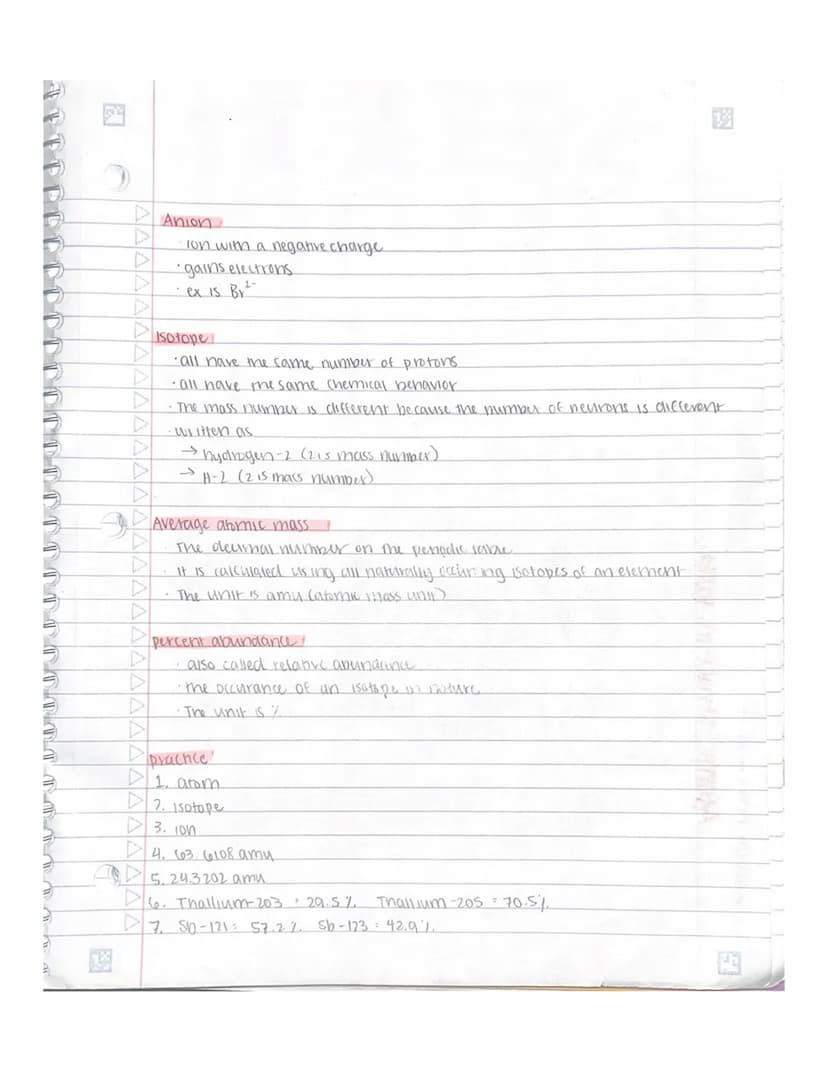 Anion
· ion with a negative charge
· gains electrons
· ex is Br¹⁻
Isotope
· all have the same number of protons
· all have the same chemical behavior
· The mass number is different because the number of neutrons is different
· written as
→ hydrogen-2 (2 is mass number)
→ H-2 (2 is mass number)
Average atomic mass
· The decimal number on the periodic table
· It is calculated using all naturally occuring isotopes of an element
· The unit is amu (atomic mass unit)
percent abundance
· also called relative abundance
· the occurance of an isotope in nature
· The unit is %
practice
1. atom
2. isotope
3. ion
4. 63.6108 amu
5. 24.3202 amu
6. Thallium-203 = 29.5% Thallium-205 = 70.5%
7. Sb-121 = 57.2% Sb-123 = 42.9%